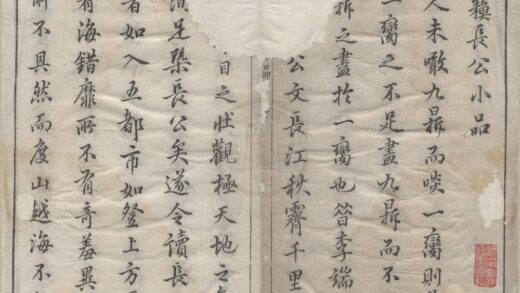 長公小品
人未噉九鼎而啖一臠則
一臠之不足盡九鼎而不
之盡於一臠也昔李端
公文長江秋霽千里
目之壯觀極天地之
足槩長公矣遂令讀長
者如入五都市如登上方
海錯靡所不有奇羞異
所不具然而度山越海不